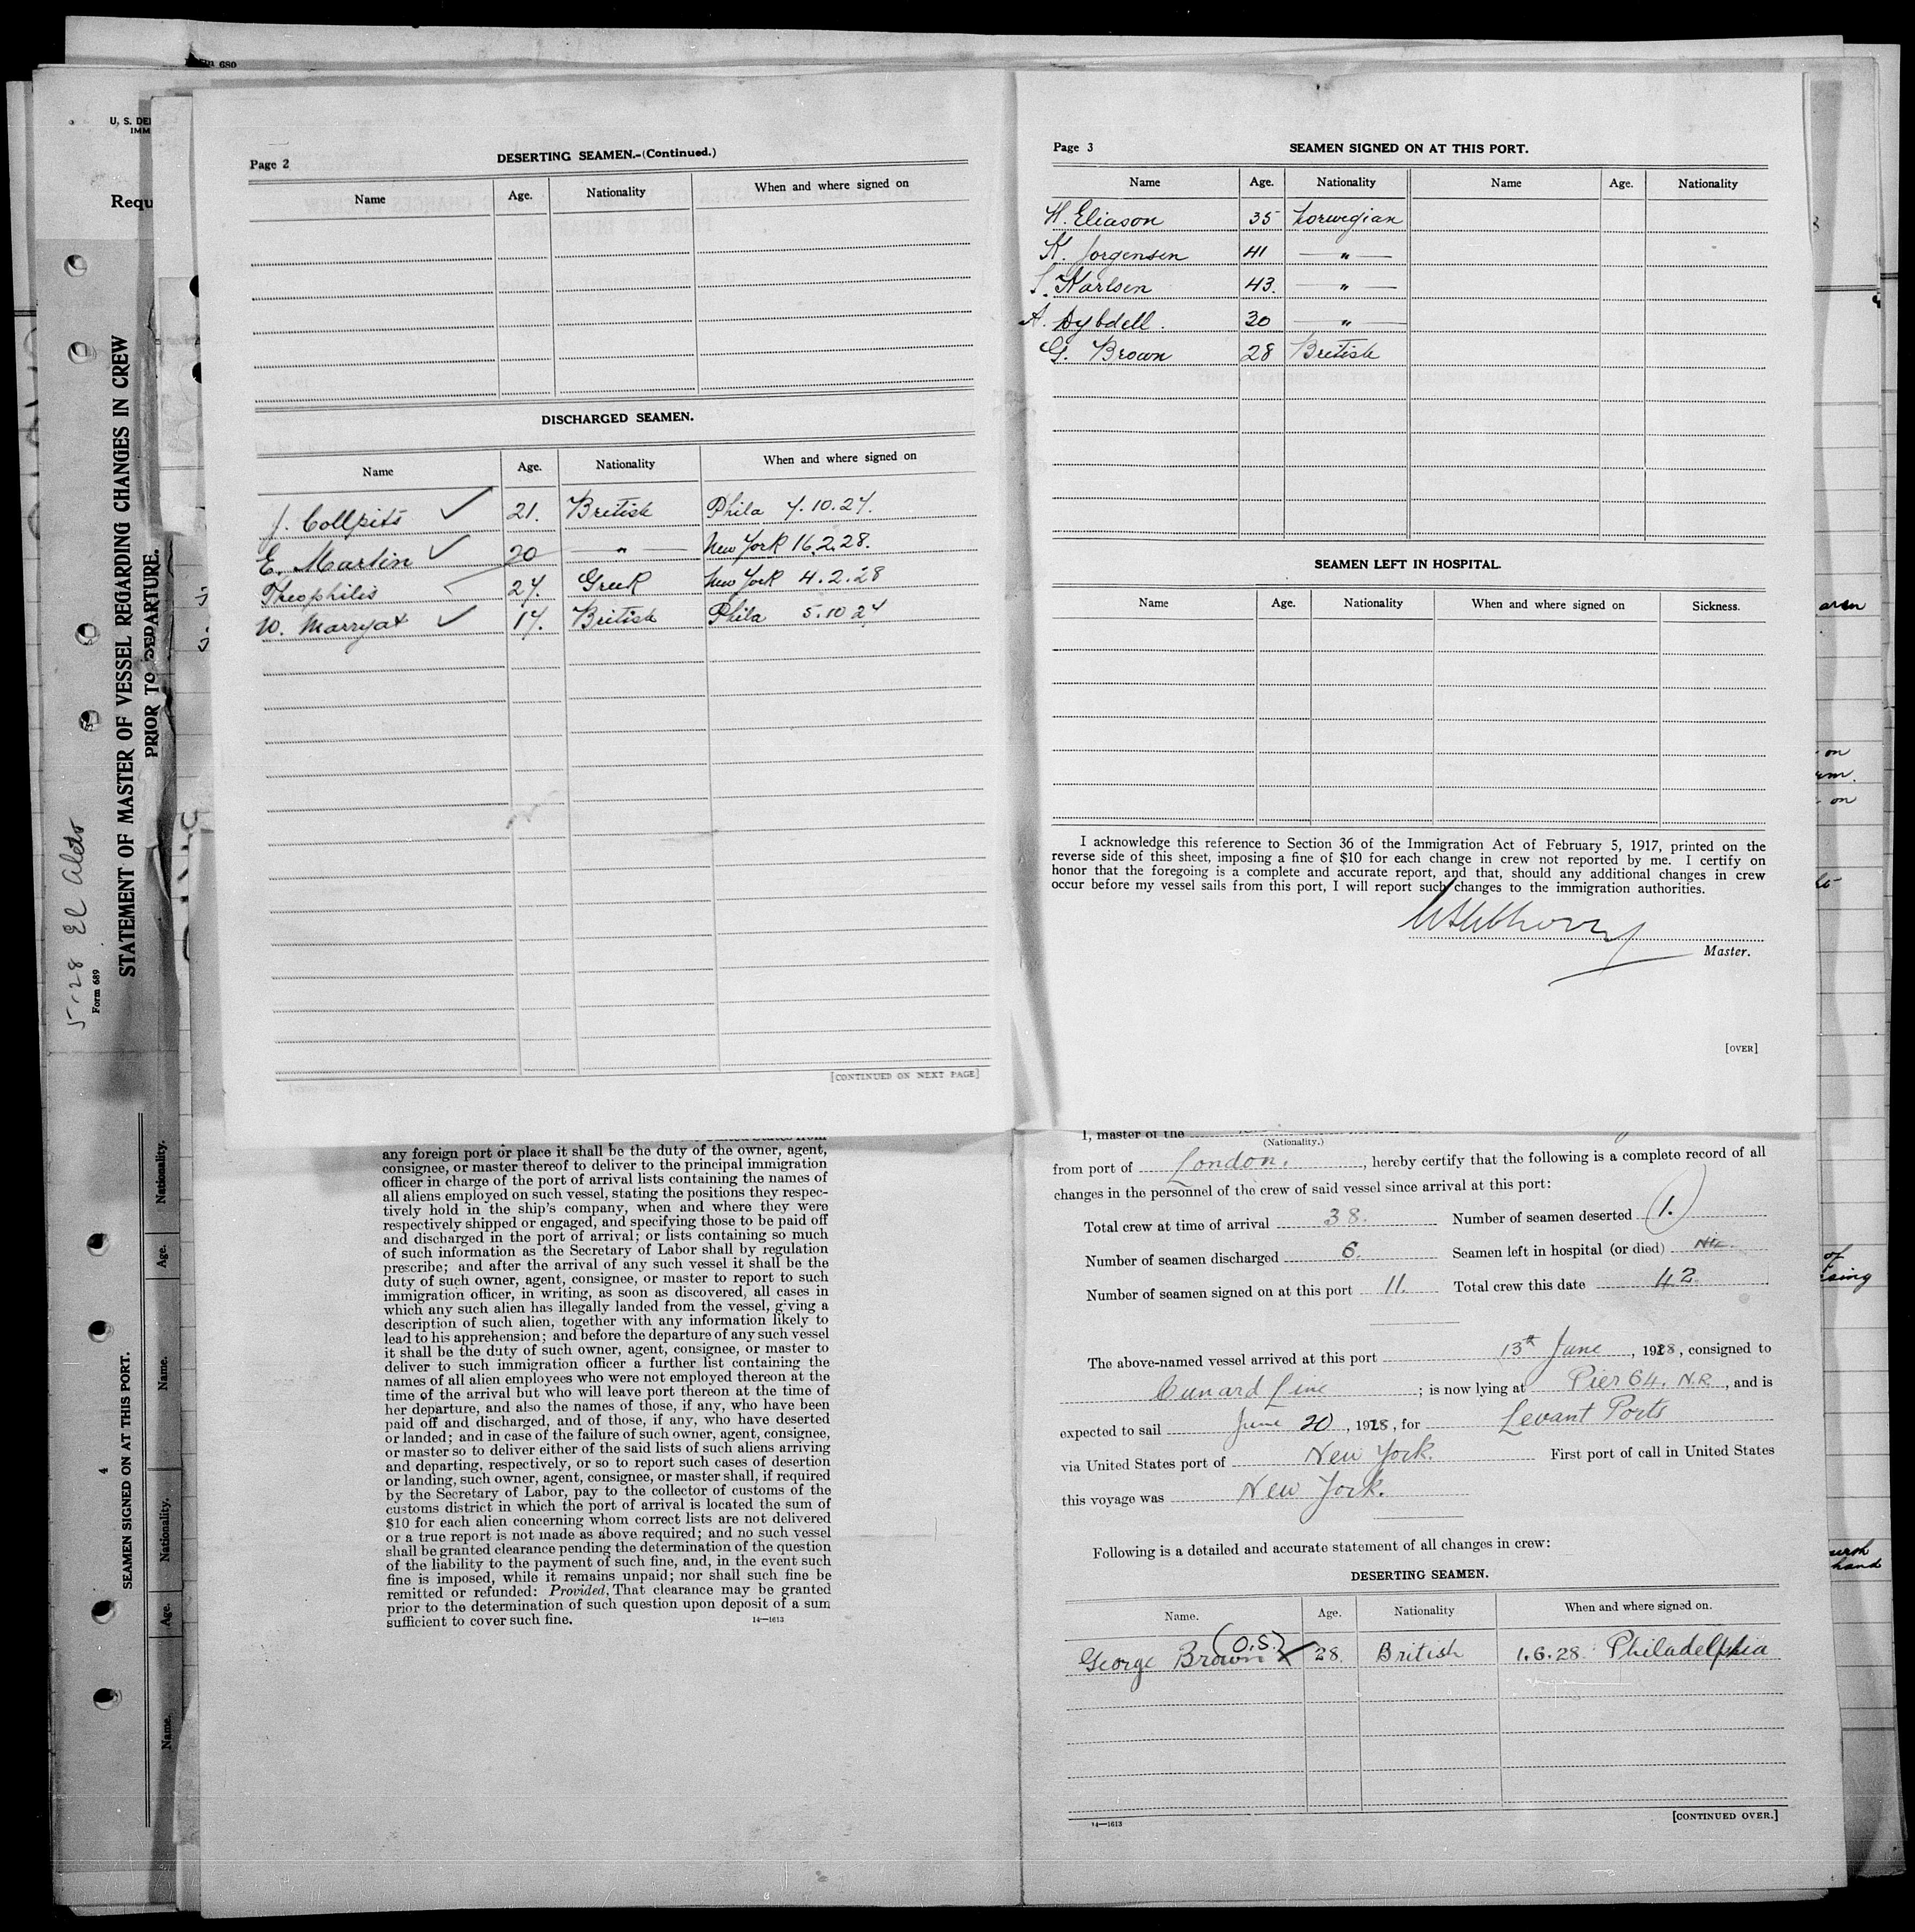 Form 680
U. S. DE
IMM
Requ
STATEMENT OF MASTER OF VESSEL REGARDING CHANGES IN CREW
PRIOR TO DEPARTURE.
5-28 El Aleto
Form 689
4
SEAMEN SIGNED ON AT THIS PORT.
Name. Age. Nationality. Name. Age. Nationality.
Page 2
DESERTING SEAMEN.-(Continued.)
Name Age. Nationality When and where signed on
DISCHARGED SEAMEN.
Name Age. Nationality When and where signed on
J. Collpits ✓ 21. British Phila 7.10.27.
E. Martin ✓ 20 — " — New York 16.2.28.
Theophilis ✓ 27. Greek New York 4.2.28
W. Marryat ✓ 17. British Phila 5.10 27
[CONTINUED ON NEXT PAGE]
Page 3
SEAMEN SIGNED ON AT THIS PORT.
Name Age. Nationality Name Age. Nationality
H. Eliason 35 Norwegian
K. Jorgensen 41 — " —
S. Karlsen 43. — " —
A. Dybdell. 30 — " —
G. Brown 28 British
SEAMEN LEFT IN HOSPITAL.
Name Age. Nationality When and where signed on Sickness.
I acknowledge this reference to Section 36 of the Immigration Act of February 5, 1917, printed on the
reverse side of this sheet, imposing a fine of $10 for each change in crew not reported by me. I certify on
honor that the foregoing is a complete and accurate report, and that, should any additional changes in crew
occur before my vessel sails from this port, I will report such changes to the immigration authorities.
Master.
[OVER]
any foreign port or place it shall be the duty of the owner, agent,
consignee, or master thereof to deliver to the principal immigration
officer in charge of the port of arrival lists containing the names of
all aliens employed on such vessel, stating the positions they respec-
tively hold in the ship's company, when and where they were
respectively shipped or engaged, and specifying those to be paid off
and discharged in the port of arrival; or lists containing so much
of such information as the Secretary of Labor shall by regulation
prescribe; and after the arrival of any such vessel it shall be the
duty of such owner, agent, consignee, or master to report to such
immigration officer, in writing, as soon as discovered, all cases in
which any such alien has illegally landed from the vessel, giving a
description of such alien, together with any information likely to
lead to his apprehension; and before the departure of any such vessel
it shall be the duty of such owner, agent, consignee, or master to
deliver to such immigration officer a further list containing the
names of all alien employees who were not employed thereon at the
time of the arrival but who will leave port thereon at the time of
her departure, and also the names of those, if any, who have been
paid off and discharged, and of those, if any, who have deserted
or landed; and in case of the failure of such owner, agent, consignee,
or master so to deliver either of the said lists of such aliens arriving
and departing, respectively, or so to report such cases of desertion
or landing, such owner, agent, consignee, or master shall, if required
by the Secretary of Labor, pay to the collector of customs of the
customs district in which the port of arrival is located the sum of
$10 for each alien concerning whom correct lists are not delivered
or a true report is not made as above required; and no such vessel
shall be granted clearance pending the determination of the question
of the liability to the payment of such fine, and, in the event such
fine is imposed, while it remains unpaid; nor shall such fine be
remitted or refunded: Provided, That clearance may be granted
prior to the determination of such question upon deposit of a sum
sufficient to cover such fine.
14—1613
I, master of the
(Nationality.)
from port of London. , hereby certify that the following is a complete record of all
changes in the personnel of the crew of said vessel since arrival at this port:
Total crew at time of arrival 38. Number of seamen deserted (1.)
Number of seamen discharged 6. Seamen left in hospital (or died)
Number of seamen signed on at this port 11. Total crew this date 42
The above-named vessel arrived at this port 13th June , 1928, consigned to
Cunard Line ; is now lying at Pier 64. N.R. , and is
expected to sail June 20 , 1928, for Levant Ports
via United States port of New York. First port of call in United States
this voyage was New York.
Following is a detailed and accurate statement of all changes in crew:
DESERTING SEAMEN.
Name. Age. Nationality When and where signed on.
George Brown (O.S.) 28. British 1.6.28. Philadelphia
14—1613
[CONTINUED OVER.]
on
on
of
hand